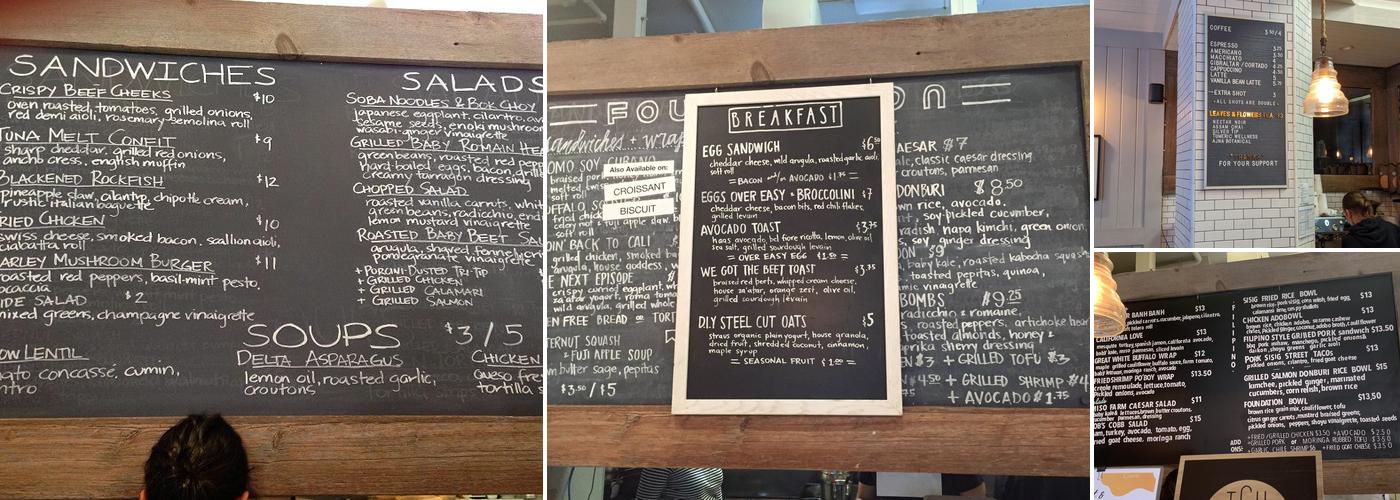 SANDWICHES
CRISPY BEEF CHEEKS $10
oven roasted tomatoes, grilled onions,
red demi aioli, rosemary-semolina roll
TUNA MELT CONFIT $9
sharp cheddar, grilled red onions,
ancho cress, english muffin
BLACKENED ROCKFISH $12
pineapple slaw, cilantro, chipotle cream,
rustic italian baguette
RIED CHICKEN $10
swiss cheese, smoked bacon, scallion aioli,
cialbatta roll
ARLEY MUSHROOM BURGER $11
roasted red peppers, basil-mint pesto,
ocaccia
IDE SALAD $2
mixed greens, champagne vinaigrette
SALADS
SOBA NOODLES & BOK CHOY
japanese eggplant, cilantro,
sesame seeds, enoki mushroo
wasabi-ginger vinaigrette
GRILLED BABY ROMAINE HEA
green beans, roasted red pepp
hard boiled eggs, bacon, drill
creamy tarragon dressing
CHOPPED SALAD
roasted vanilla carrots, whit
green beans, radicchio, end
lemon mustard vinaigrette
ROASTED BABY BEET SAL
arugula, shaved fennel,
pomegranate vinaigrette
+ PORCINI-DUSTED TRI-TIP
+ GRILLED CHICKEN
+ GRILLED CALAMARI
+ GRILLED SALMON
SOUPS $3/5
OW LENTIL
ato concassé, cumin,
ntro
DELTA ASPARAGUS
lemon oil, roasted garlic,
croutons
CHICKEN
queso fre
tortilla s
FOU
ON
sandwiches + wrap
OMO SOY CUBANO
braised pork
soft roll
OIN' BACK TO CALI
grilled chicken, smoked ba
arugula, house goddess,
E NEXT EPISODE
crispy curried eggplant, wh
za'atar yogurt, roma toma
wild arugula, grilled whole
EN FREE BREAD or TORT
TERNUT SQUASH
& FUJI APPLE SOUP
n butter sage, pepitas
$3.50/$5
Also Available on:
CROISSANT
BISCUIT
BREAKFAST
EGG SANDWICH $6.50
cheddar cheese, wild arugula, roasted garlic aioli,
soft roll
= BACON and/or AVOCADO $1.75 =
EGGS OVER EASY + BROCCOLINI $7
cheddar cheese, bacon bits, red chili flakes,
grilled levain
AVOCADO TOAST $3.75
haas avocado, bel fiore ricotta, lemon, olive oil
sea salt, grilled sourdough levain
= OVER EASY EGG $1.50 =
WE GOT THE BEET TOAST $3.75
braised red beets, whipped cream cheese,
house za'atar, orange zest, olive oil,
grilled sourdough levain
D.I.Y STEEL CUT OATS $5
straus organic plain yogurt, house granola,
dried fruit, shredded coconut, cinnamon,
maple syrup
= SEASONAL FRUIT $1.00 =
AESAR $7
ale, classic caesar dressing
croutons, parmesan
DONBURI $8.50
wn rice, avocado,
, soy-pickled cucumber,
radish, napa kimchi, green onion,
, soy ginger dressing
ON $9
, baby kale, roasted kabocha squash
toasted pepitas, quinoa,
mic vinaigrette
BOMBS $9.25
radicchio & romaine,
, roasted peppers, artichoke hear
toasted almonds, honey &
prika sherry dressing
$3 + GRILLED TOFU $3
$4.50 + GRILLED SHRIMP $4
+ AVOCADO $1.75
COFFEE 3.50/4
ESPRESSO 3.25
AMERICANO
MACCHIATO
GIBRALTAR/CORTADO
CAPPUCCINO
LATTE 5
VANILLA BEAN LATTE 5.75
+EXTRA SHOT
-ALL SHOTS ARE DOUBLE-
LEAVES & FLOWERS
NECTAR NOIR
ASSAM CHAI
SILVER TIP
TUMERIC WELLNESS
AJNA BOTANICAL
FOR YOUR SUPPORT
BANH BANH $13
CALIFORNIA LOVE $13
GREAT WHITE BUFFALO WRAP $12
FRIED SHRIMP PO'BOY WRAP $13.50
remoulade, lettuce, tomato,
Pickled onions, avocado
MISO FARM CAESAR SALAD $11
OB'S COBB SALAD $15
am, turkey, avocado, tomato, egg,
ried goat cheese, moringa ranch
FILIPINO
SISIG FRIED RICE BOWL $13
CHICKEN ADOBO BOWL $13
FILIPINO STYLE GRILLED PORK sandwich $13.50
PORK SISIG STREET TACOS $13
cilantro, pickled onions, fried goat cheese
GRILLED SALMON DONBURI RICE BOWL $15
kimchee, pickled ginger, marinated
cucumbers, corn relish, brown rice
FOUNDATION BOWL $13.50
brown rice grain mix, cauliflower, tofu
pickled onions, peppers, shoyu vinaigrette, toasted seeds
ADD ONS: +FRIED/GRILLED CHICKEN $3.50 +AVOCADO $2.50
+GRILLED PORK or MORINGA RUBBED TOFU $3.50
+GARLIC CHILE SHRIMP $6 +FRIED GOAT CHEESE $3.25